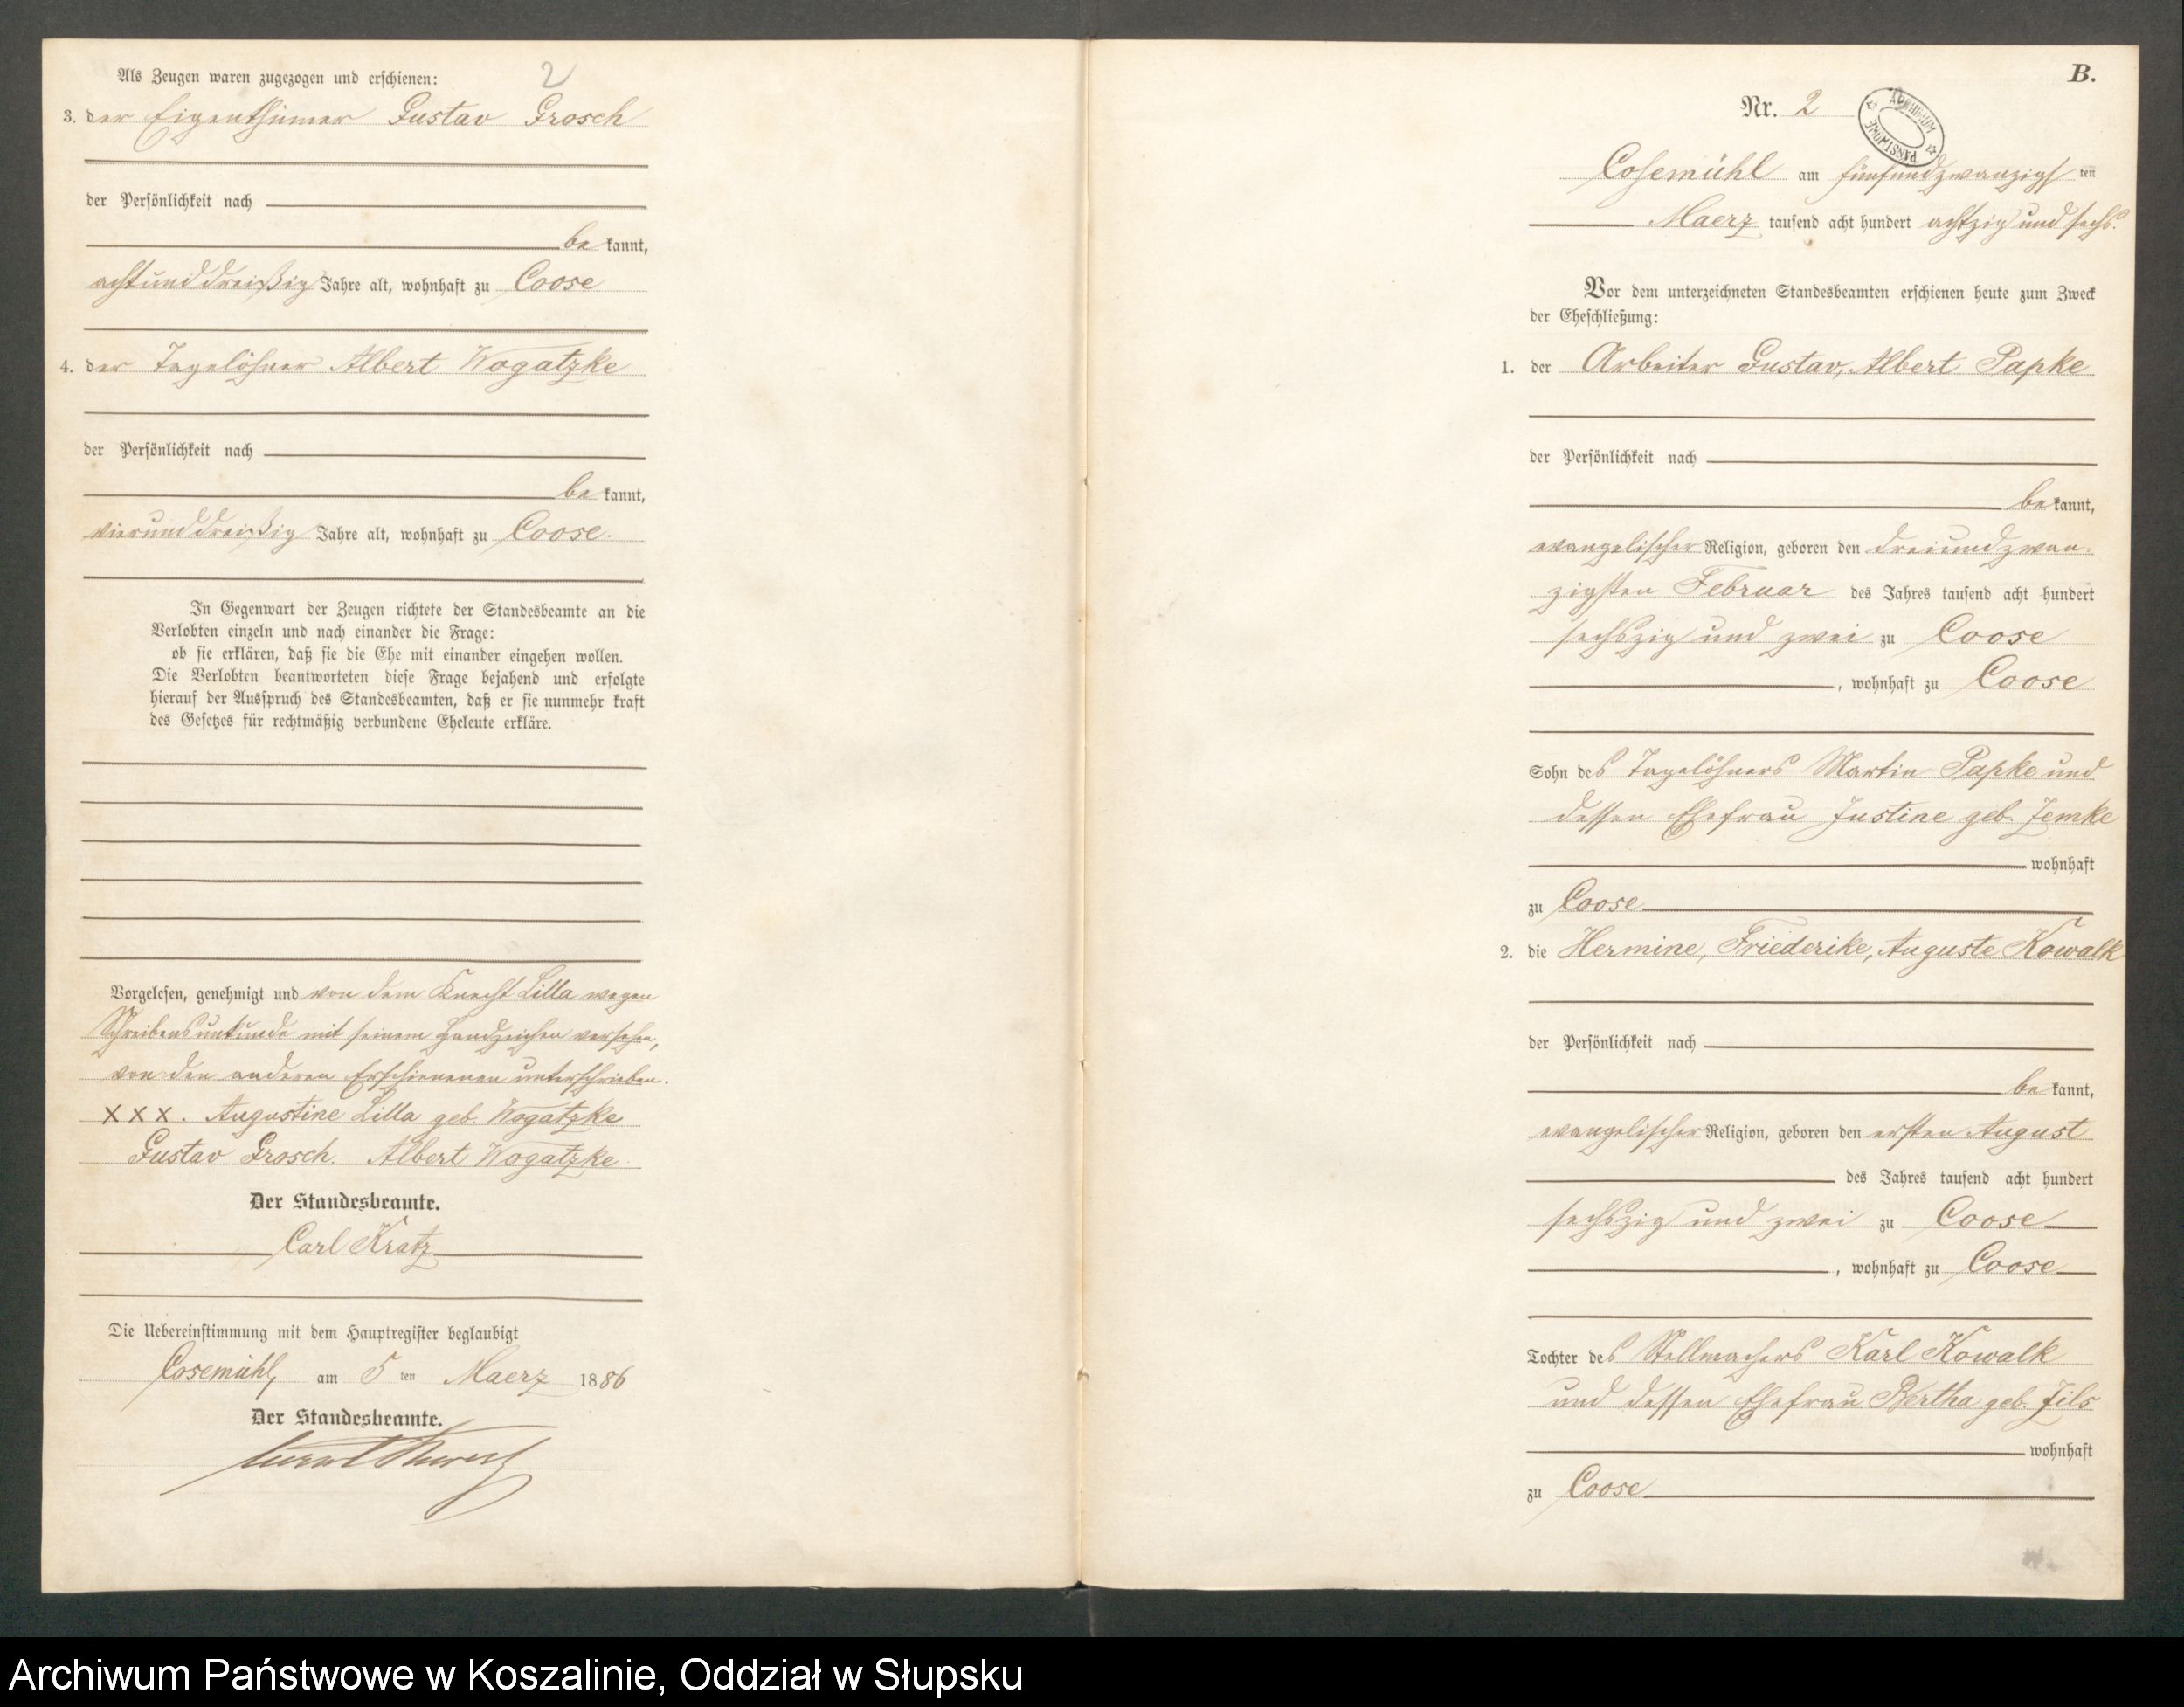 Als Zeugen waren zugezogen und erschienen:
2
3. der Eigenthümer Gustav Grosch
der Persönlichkeit nach
be kannt,
achtunddreißig Jahre alt, wohnhaft zu Coose
4. der Tagelöhner Albert Wogatzke
der Persönlichkeit nach
be kannt,
vierunddreißig Jahre alt, wohnhaft zu Coose.
In Gegenwart der Zeugen richtete der Standesbeamte an die
Verlobten einzeln und nach einander die Frage:
ob sie erklären, daß sie die Ehe mit einander eingehen wollen.
Die Verlobten beantworteten diese Frage bejahend und erfolgte
hierauf der Ausspruch des Standesbeamten, daß er sie nunmehr kraft
des Gesetzes für rechtmäßig verbundene Eheleute erkläre.
Vorgelesen, genehmigt und von dem Knecht Lilla wegen
Schreibensunkunde mit seinem Handzeichen versehen,
von den anderen Erschienenen unterschrieben.
XXX. Augustine Lilla geb. Wogatzke
Gustav Grosch. Albert Wogatzke.
Der Standesbeamte.
Carl Kratz
Die Uebereinstimmung mit dem Hauptregister beglaubigt
Cosemühl, am 5 ten Maerz 1886
Der Standesbeamte.
B.
Nr. 2
ARCHIWUM PAŃSTWOWE
Cosemühl am fünfundzwanzigs ten
Maerz tausend acht hundert achtzig und sechs.
Vor dem unterzeichneten Standesbeamten erschienen heute zum Zweck
der Eheschließung:
1. der Arbeiter Gustav, Albert Papke
der Persönlichkeit nach
be kannt,
evangelischer Religion, geboren den dreiundzwan-
zigsten Februar des Jahres tausend acht hundert
sechszig und zwei zu Coose
, wohnhaft zu Coose
Sohn des Tagelöhners Martin Papke und
dessen Ehefrau Justine geb. Jemke
wohnhaft
zu Coose
2. die Hermine, Friederike, Auguste Kowalk
der Persönlichkeit nach
be kannt,
evangelischer Religion, geboren den ersten August
des Jahres tausend acht hundert
sechszig und zwei zu Coose
, wohnhaft zu Coose
Tochter des Stellmachers Karl Kowalk
und dessen Ehefrau Bertha geb. Jils
wohnhaft
zu Coose
Archiwum Państwowe w Koszalinie, Oddział w Słupsku